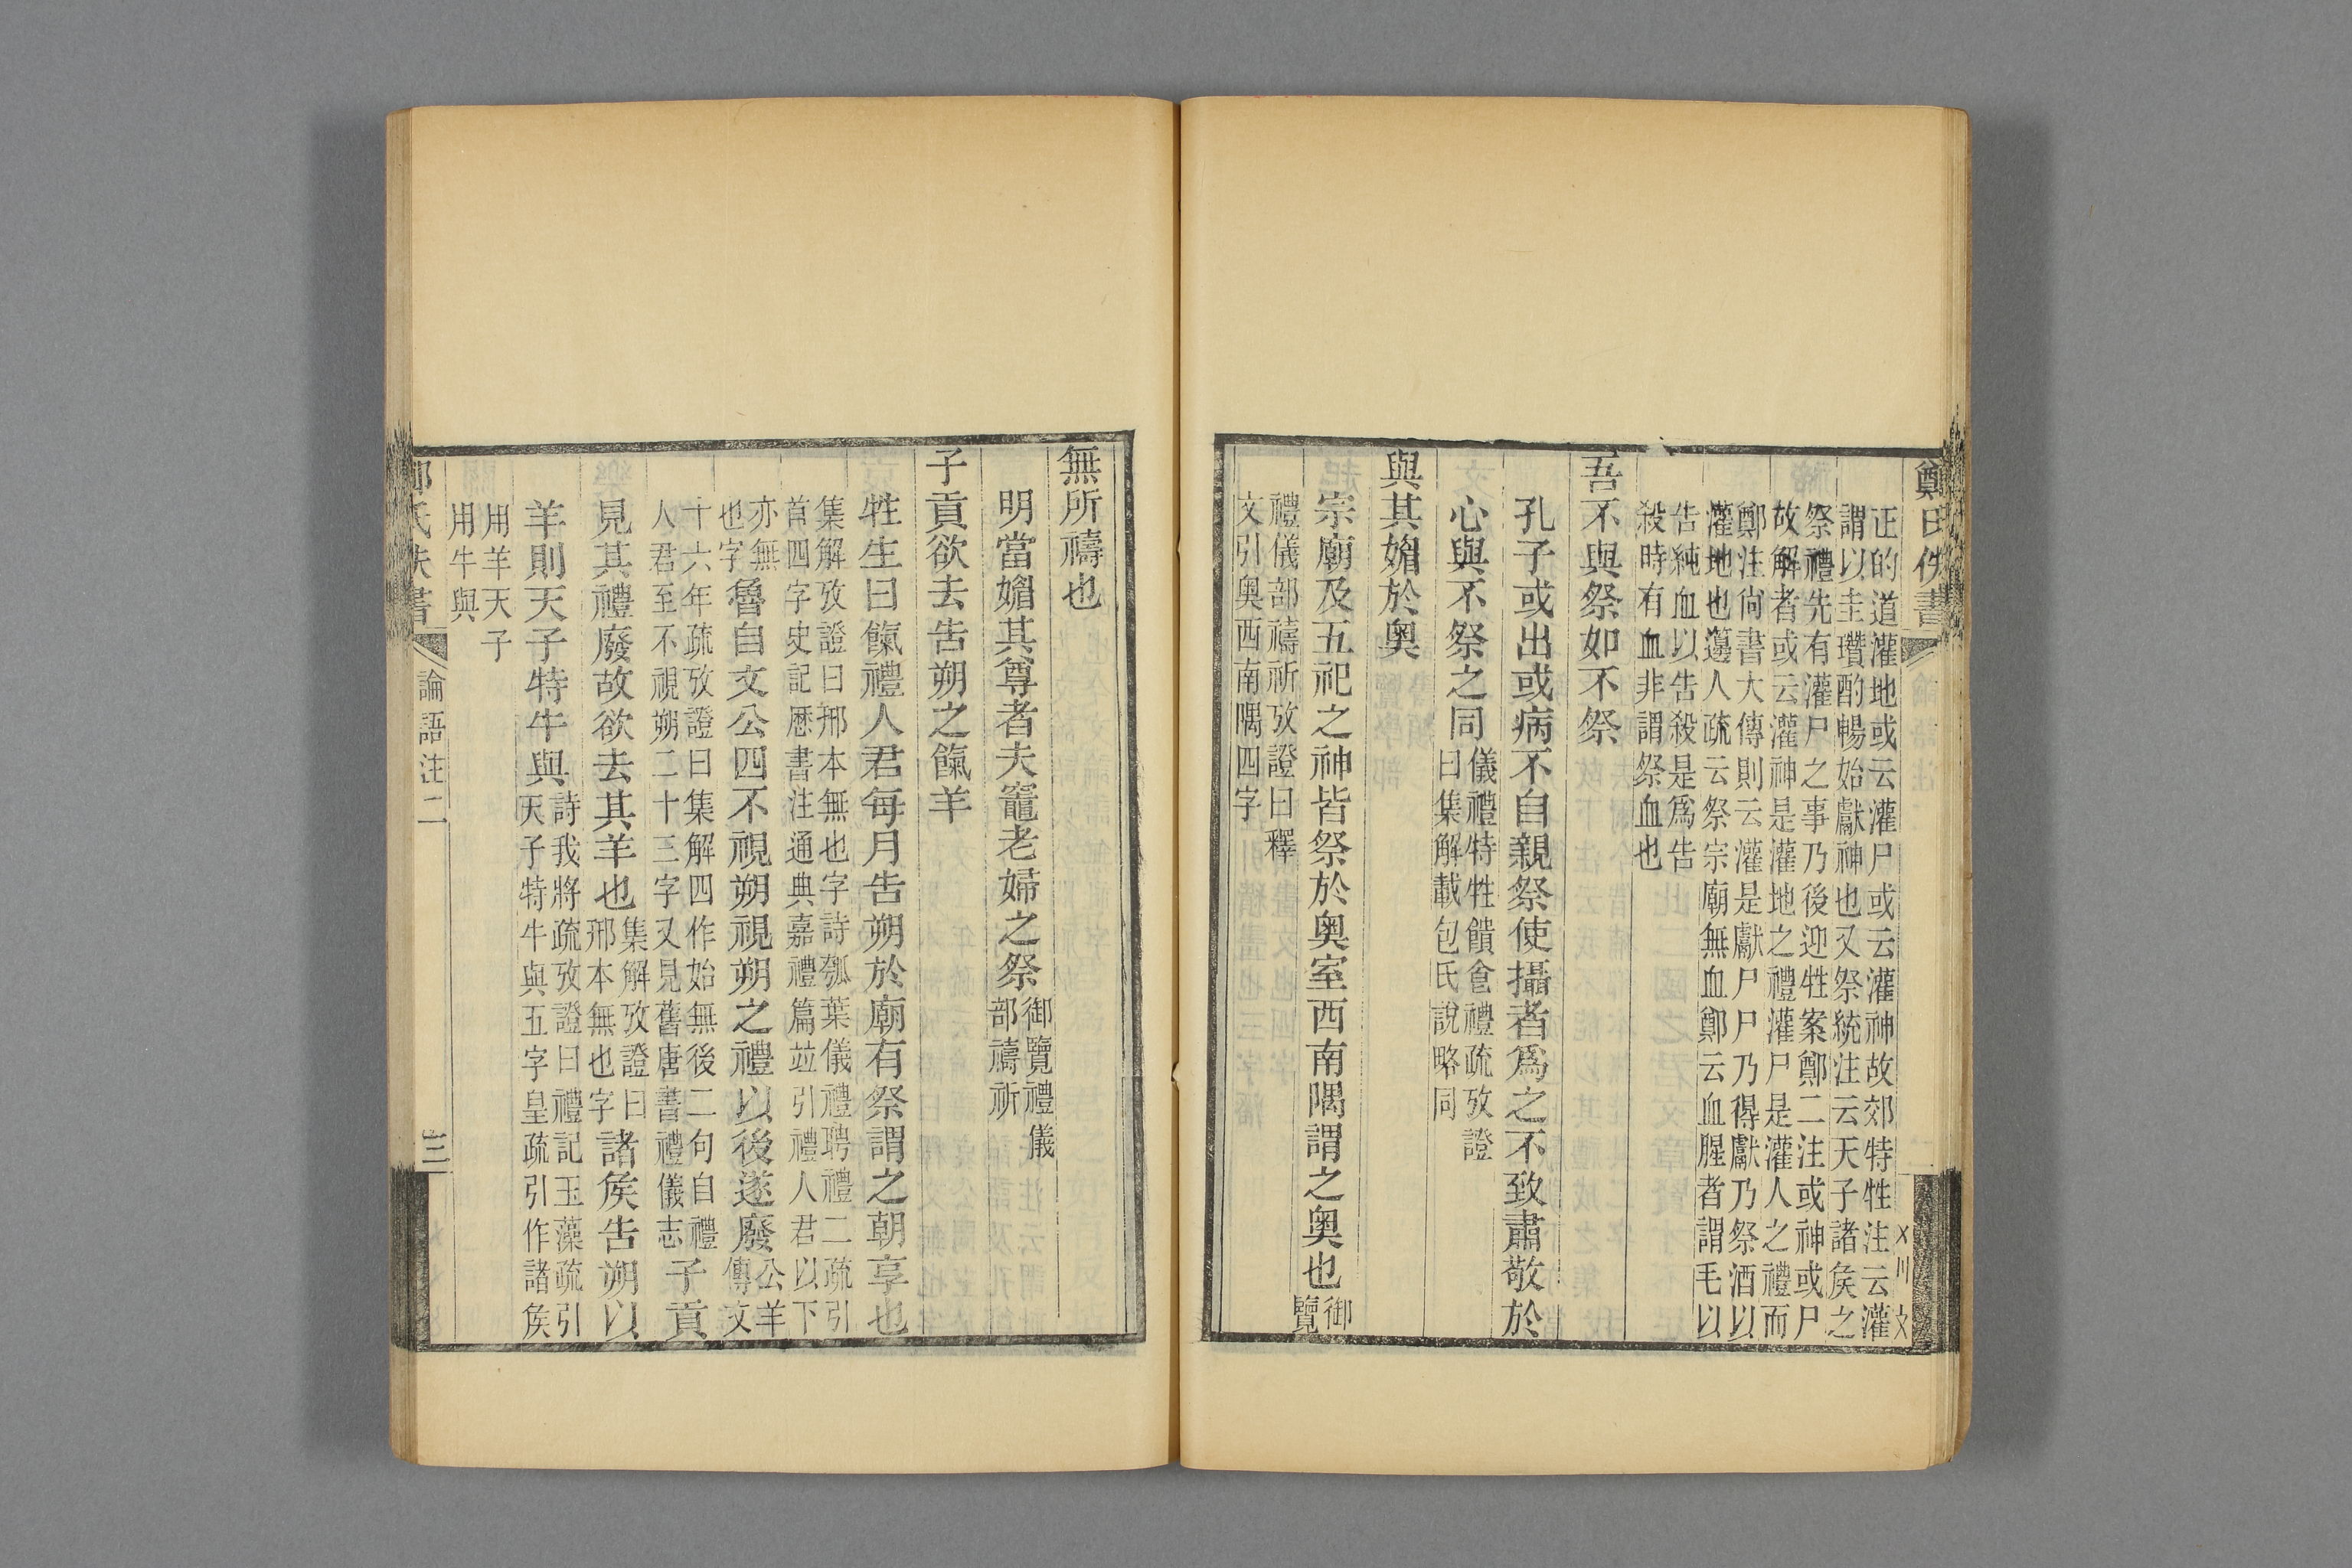 正的道灌地或云灌尸或云灌神故郊特牲注云灌
謂以圭瓚酌暢始獻神也又祭統注云天子諸矦之
祭禮先有灌尸之事乃後迎牲案鄭二注或神或尸
故解者或云灌神是灌地之禮灌尸是灌人之禮而
鄭注尙書大傳則云灌是獻尸尸乃得獻乃祭酒以
灌地也薳人疏云祭宗廟無血鄭云血腥者謂毛以
告純血以告殺是爲告
殺時有血非謂祭血也
吾不與祭如不祭
孔子或出或病不自親祭使攝者爲之不致肅敬於
心與不祭之同儀禮特牲饋食禮疏攷證
曰集解載包氏說略同
與其媚於奥
宗廟及五祀之神皆祭於奥室西南隅謂之奥也御
覽
禮儀部禱祈攷證曰釋
文引奥西南隅四字
無所禱也
明當媚其尊者夫竈老婦之祭御覽禮儀
部禱祈
子貢欲去告朔之餼羊
牲生曰餼禮人君每月告朔於廟有祭謂之朝享也
集解攷證曰邢本無也字詩瓠葉儀禮聘禮二疏引
首四字史記歷書注通典嘉禮篇竝引禮人君以下
亦無
也字魯自文公四不視朔視朔之禮以後遂廢公羊
傳文
十六年疏攷證曰集解四作始無後二句自禮
人君至不視朔二十三字又見舊唐書禮儀志子貢
見其禮廢故欲去其羊也集解攷證曰
邢本無也字諸矦告朔以
羊則天子特牛與詩我將疏攷證曰禮記玉藻疏引
天子特牛與五字皇疏引作諸矦
用羊天子
用牛與
論語注二
三